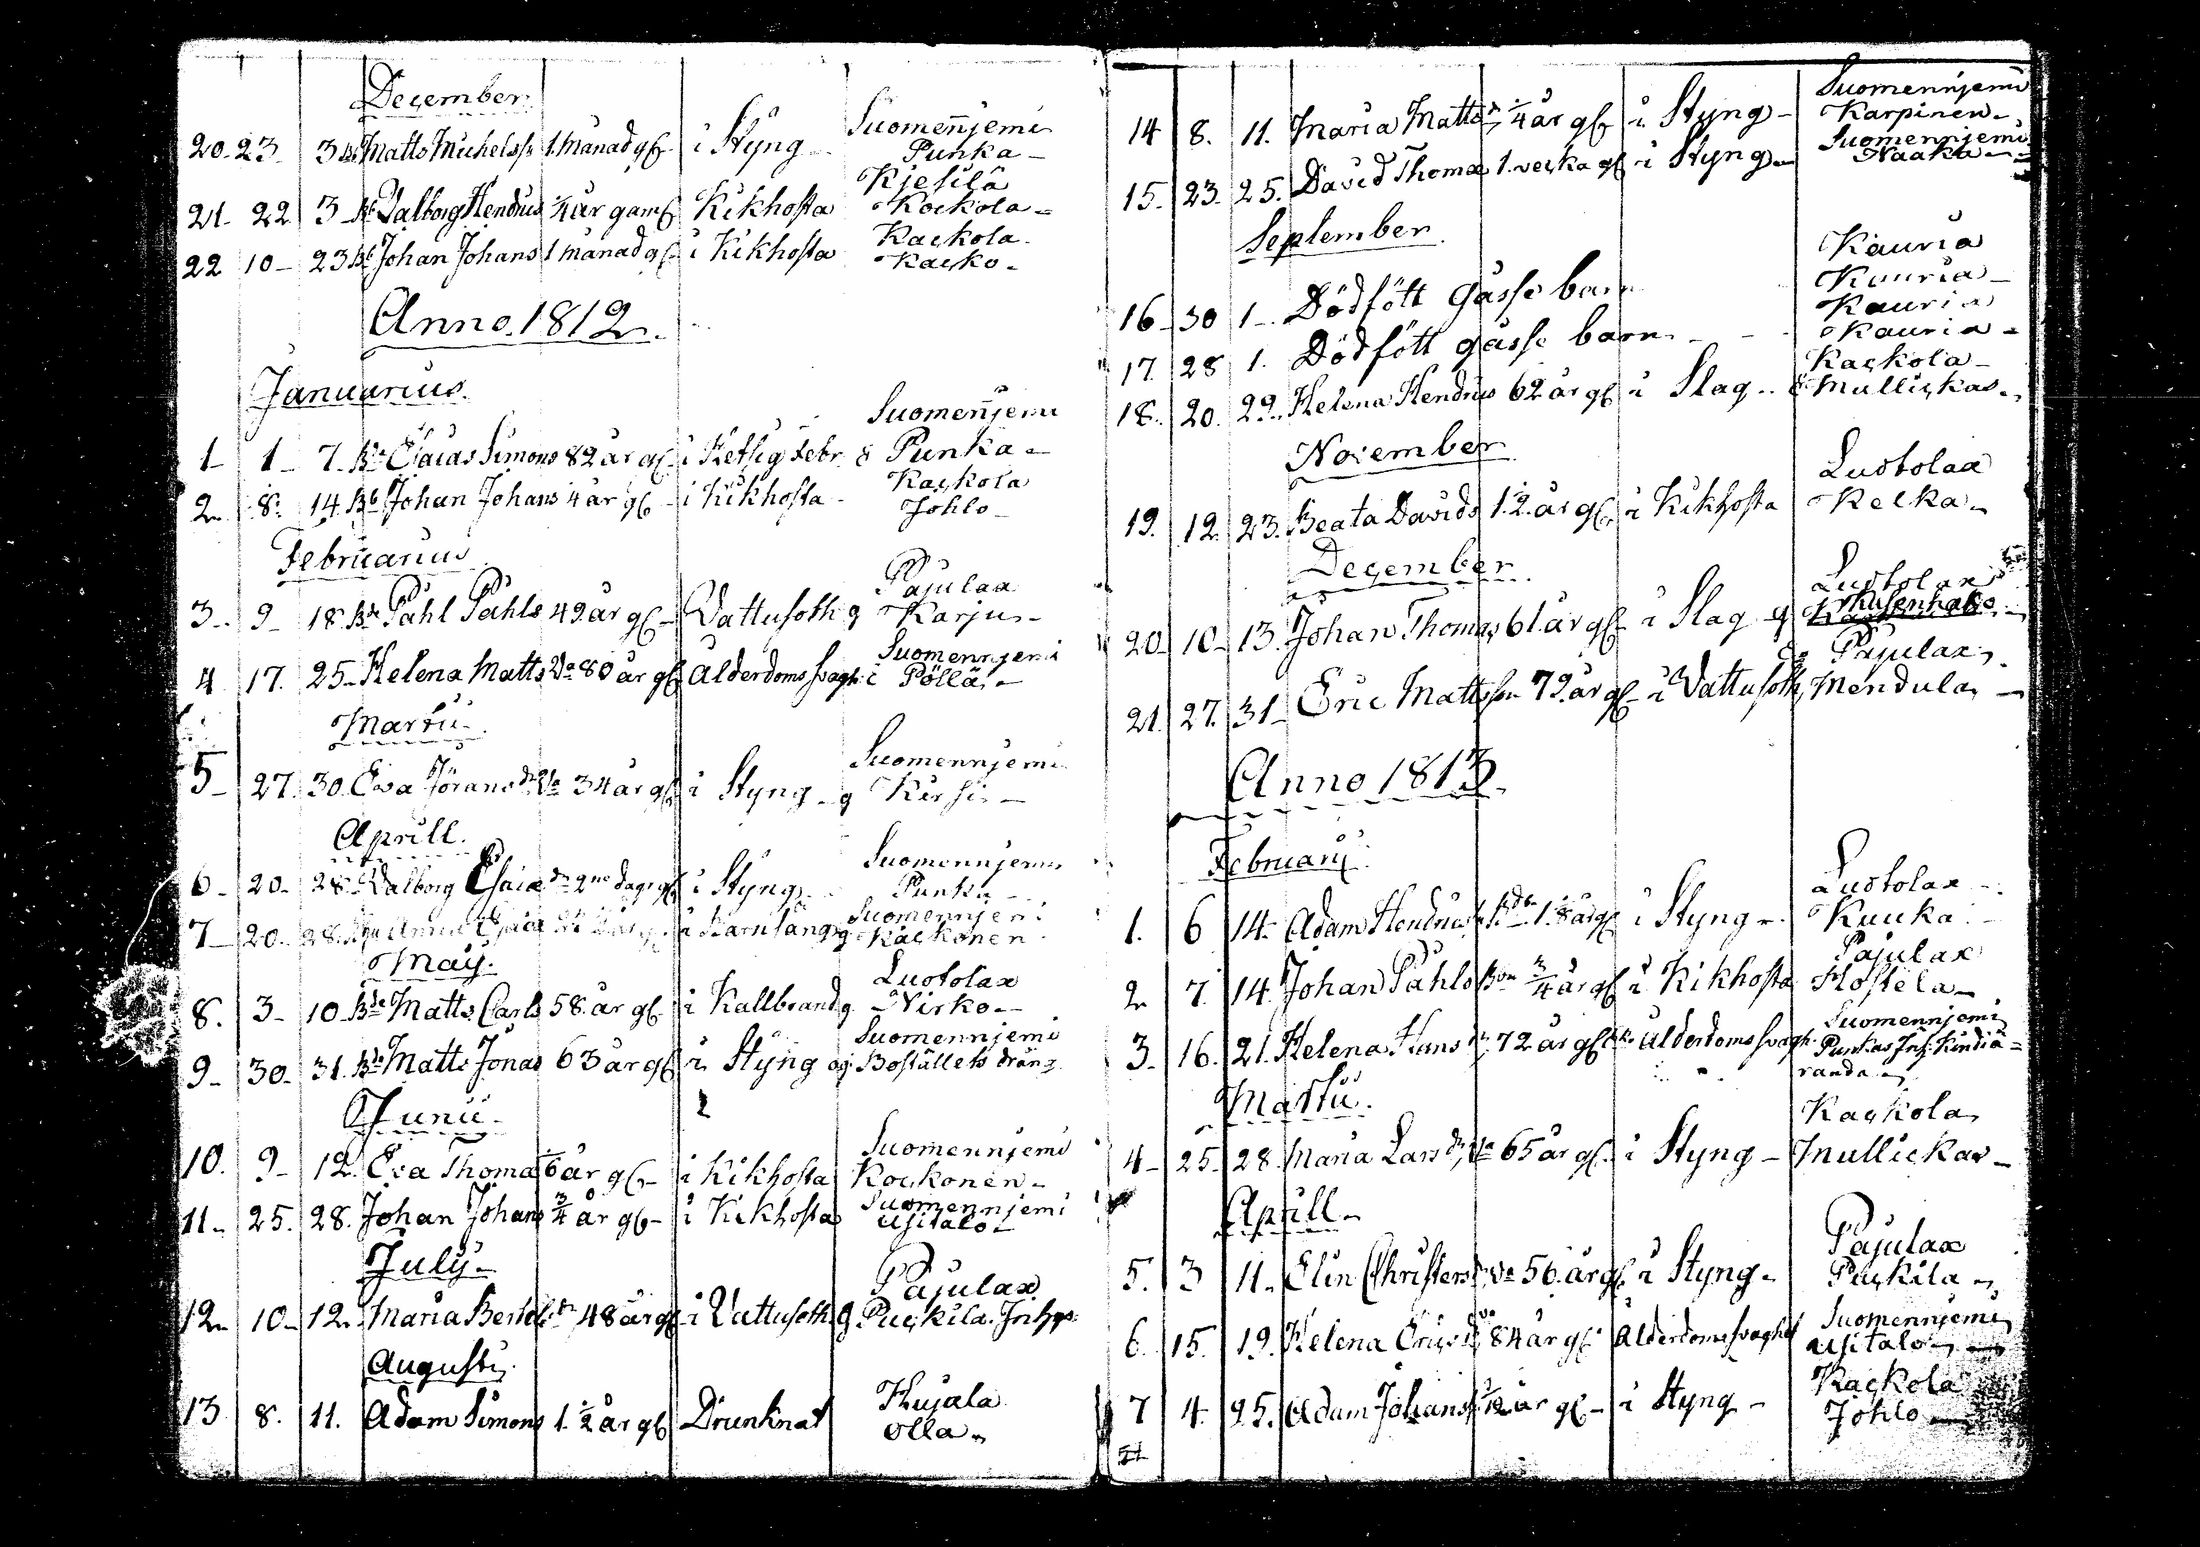 December
Suomennjemi
20. 23. 3. Matts Michelss. 1. månad gl. i Styng Punka
Kjesilä
21. 22. 3. Valborg Hendrics 1/4 år gaml. Kikhosta Kockola
Kackola
22. 10. 23. Johan Johans 1 månad gl. i Kikhosta Kacko
Anno. 1812.
Januarius.
Suomennjemi
1. 1. 7. Esaias Simons 82 år gl. i Hetsig Febr Punka
Kackola
2. 8. 14. Johan Johans 4 år gl. i Kikhosta Johlo
Februarius
Pajulax
3. 9. 18. Påhl Påhls 49 år gl. Vattusoth Karju
Suomennjemi
4. 17. 25. Helena Matts 80 år gl. Ålderdoms svagh: Pöllä
Martii
Suomennjemi
5. 27. 30. Eva Jörans dr 34 år gl. i Styng Kirsi
Aprill.
Suomennjemi
6. 20. 28. Valborg Esaiæ dr 2ne dagr gl. i Styng Punka
Suomennjemi
7. 20. 28. Anna Esaiæ i Barnsäng Kackonen
Maij.
Luotolax
8. 3. 10. Matts Carls 58. år gl. i Kallbrand Nirko
Suomennjemi
9. 30. 31. Matts Jonas 63 år gl. i Styng Boställets dräng
Junii
Suomennjemi
10. 9. 12. Eva Thomæ 1/6 år gl. i Kikhosta Kockonen
Suomennjemi
11. 25. 28. Johan Johans 3/4 år gl. i Kikhosta Ysitalo
July
Pajulax
12. 10. 12. Maria Bertils dr 48 år gl. i Vattusoth Puckila Inhys
Augusti
Kujala
13. 8. 11. Adam Simons 1. 1/2 år gl. Drunknat Olla
Suomennjemi
14 8. 11. Maria Matts dr 1/4 år gl. i Styng Karpinen
Suomennjemi
15. 23. 25. David Thomæ 1. vecka gl. i Styng Naaka
September
Kauria
16. 30 1. Dödfött gåsse barn Kauria
Kauria
17. 28 1. Dödfött gåsse barn Kauria
Kackola
18. 20. 22. Helena Hendrics 62 år gl. i Slag Mullickas
November
Luotolax
19. 12. 23. Beata Davids 1. 1/2 år gl. i Kikhosta Kelka
December
Luotolax
20. 10. 13. Johan Thomas 61 år gl. i Slag
Pajulax
21. 27. 31. Eric Mattsson 72. år gl. i Vattusoth Mendula
Anno 1813
Februarij
Luotolax
1. 6 14. Adam Hendrics 1. 1/8 år gl. i Styng Kuuka
Pajulax
2. 7. 14. Johan Påhls 3/4 år gl. i Kikhosta Hostela
Suomennjemi
3. 16. 21. Helena Hans dr 72 år gl. Ålderdoms svagh. Punkas Inh. Kindia=
randa
Martii
Kackola
4. 25. 28. Maria Lars dr 65 år gl. i Styng Mullickas
Aprill
Pajulax
5. 3 11. Elin Christers dr 56. år gl. i Styng Puckila
Suomennjemi
6. 15. 19. Helena Erics dr 84 år gl. Ålderdoms svaghet Ysitalo
Kackola
7 4. 25. Adam Johans 1/12 år gl. i Styng Johlo